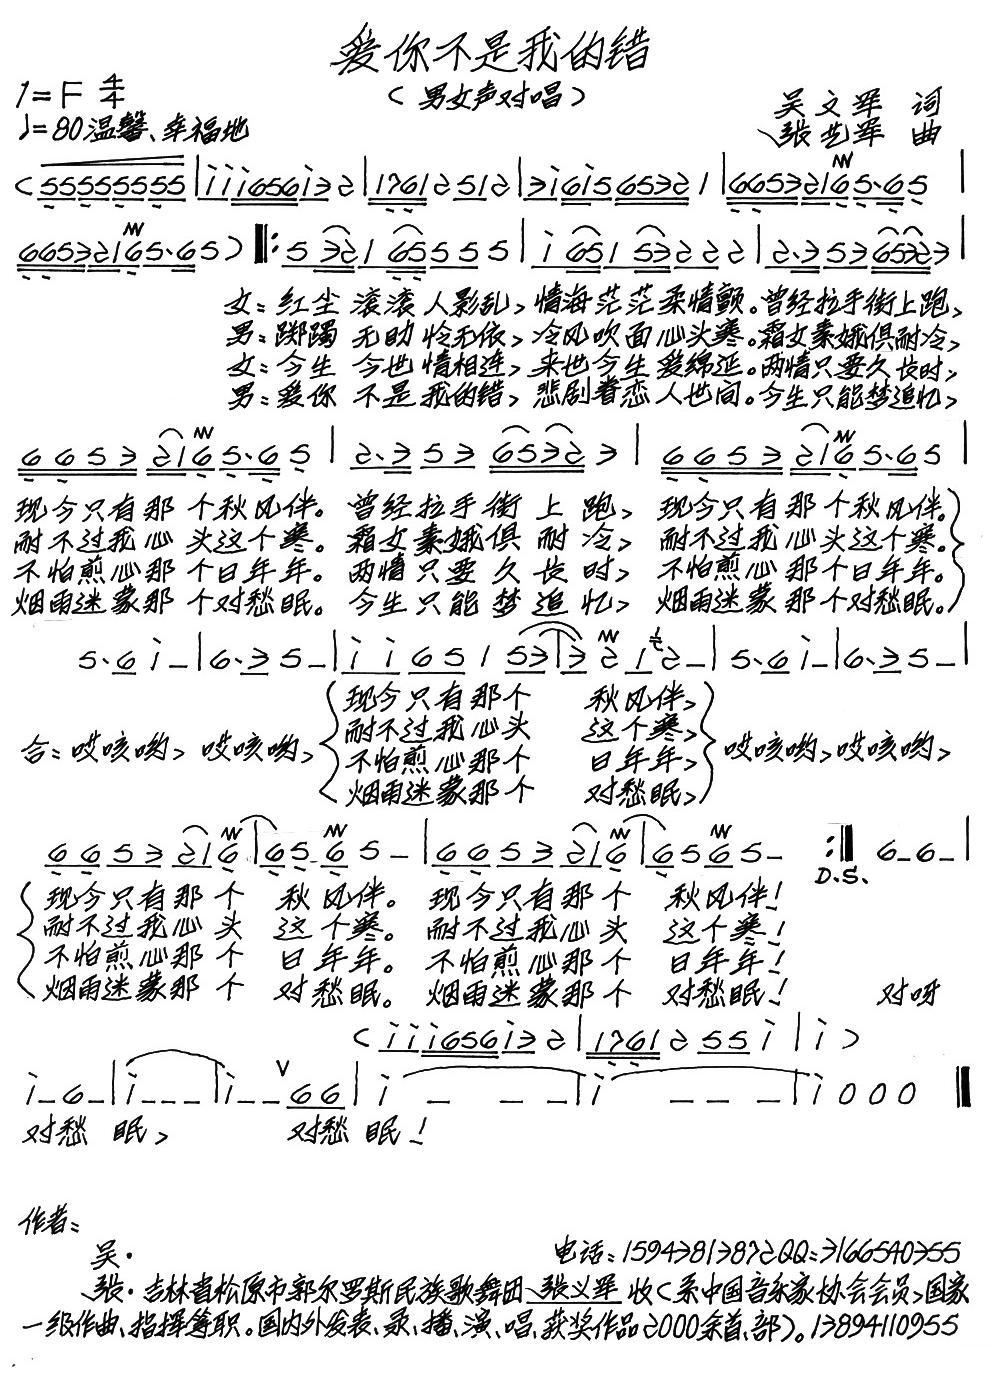 爱你不是我的错
1=F 4/4
（男女声对唱）
吴文军 词
♩=80温馨、幸福地
张艺军 曲
女：红尘 滚滚 人影乱，情海茫茫柔情颤。曾经拉手街上跑，
男：踯躅 无助 怜无依，冷风吹面心头寒。霜女素娥俱耐冷，
女：今生 今世 情相连，来世今生爱绵延。两情只要久长时，
男：爱你 不是 我的错，悲剧眷恋人世间。今生只能梦追忆，
现今只有那个秋风伴。曾经拉手街上跑，现今只有那个秋风伴。
耐不过我心头这个寒。霜女素娥俱耐冷，耐不过我心头这个寒。
不怕煎心那个日年年。两情只要久长时，不怕煎心那个日年年。
烟雨迷蒙那个对愁眠。今生只能梦追忆，烟雨迷蒙那个对愁眠。
现今只有那个 秋风伴，
耐不过我心头 这个寒，
合：哎咳哟，哎咳哟， 不怕煎心那个 日年年， 哎咳哟，哎咳哟，
烟雨迷蒙那个 对愁眠，
D.S.
现今只有那个 秋风伴。现今只有那个 秋风伴！
耐不过我心头 这个寒。耐不过我心头 这个寒！
不怕煎心那个 日年年。不怕煎心那个 日年年！
烟雨迷蒙那个 对愁眠。烟雨迷蒙那个 对愁眠！ 对呀
对愁 眠， 对愁 眠！
作者：
吴· 电话：15943813872QQ：3166540355
张·吉林省松原市郭尔罗斯民族歌舞团、张义军 收（系中国音乐家协会会员，国家
一级作曲、指挥等职。国内外发表、录、播、演、唱、获奖作品2000余首、部）。13894110955